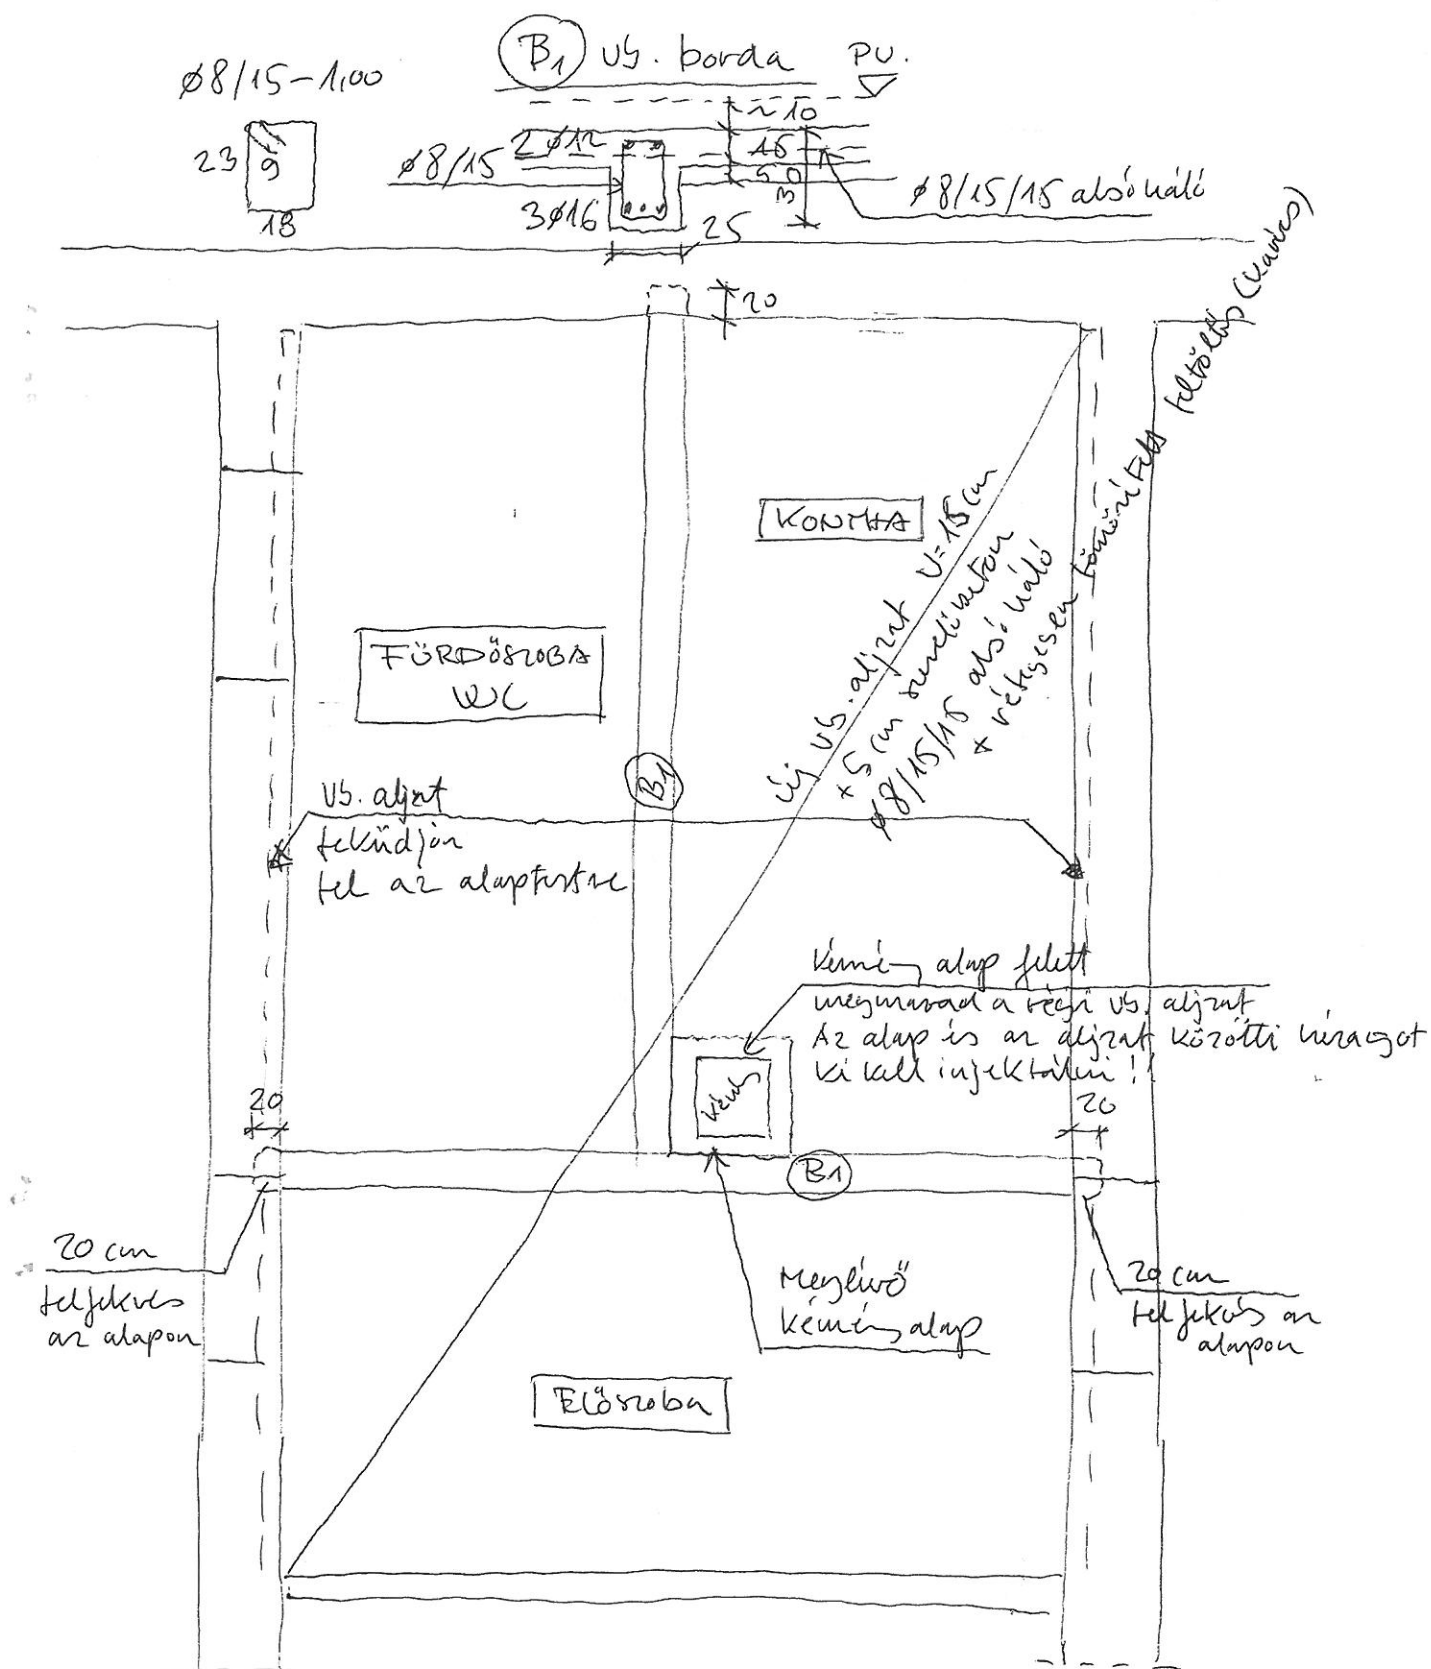 B1 vb. borda
PV.
ø8/15-1,00
~10
2ø12
15
23
9
ø8/15
5
30
ø8/15/15 alsó háló
3ø16
18
25
20
KONYHA
új vb. aljzat v=15cm
+ 5 cm szerelőbeton
ø8/15/15 alsó háló
+ rétegesen tömörített feltöltés (kavics)
FÜRDŐSZOBA
WC
B1
vb. aljzat
feküdjön
fel az alaptestre
kémény alap felett
megmarad a régi vb. aljzat
Az alap és az aljzat közötti hézagot
ki kell injektálni!!
kémény
20
20
B1
20 cm
felfekvés
az alapon
Meglévő
kémény alap
20 cm
felfekvés az
alapon
Előszoba